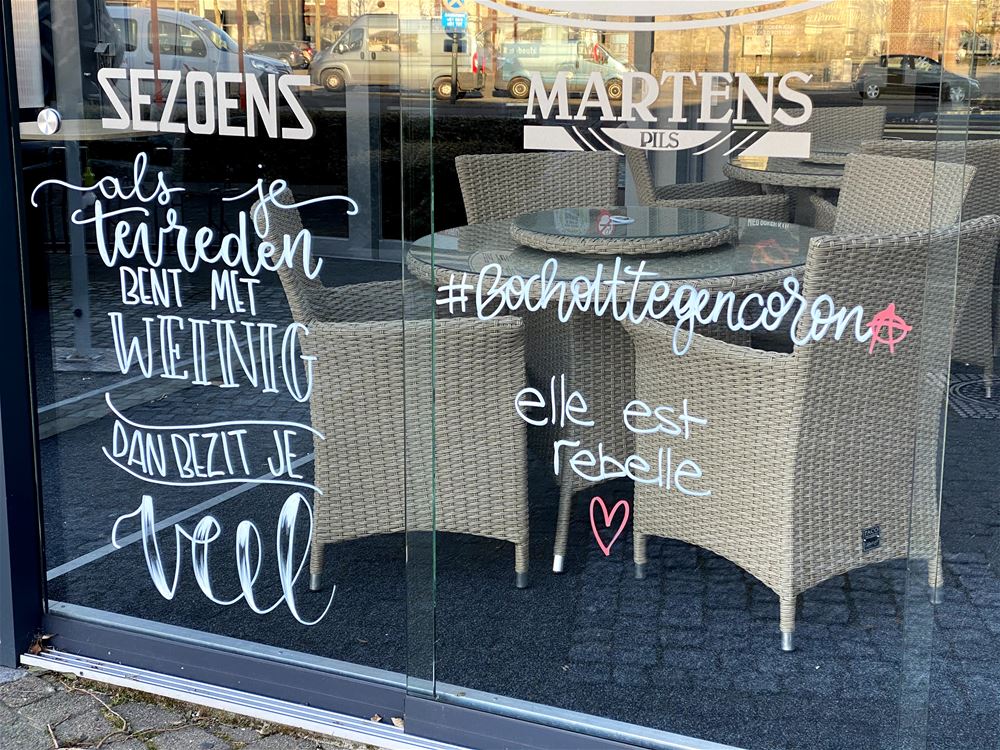 SEZOENS
als je
tevreden
BENT MET
WEINIG
DAN BEZIT JE
veel
MARTENS
PILS
#Bocholttegencorona
elle est
rebelle